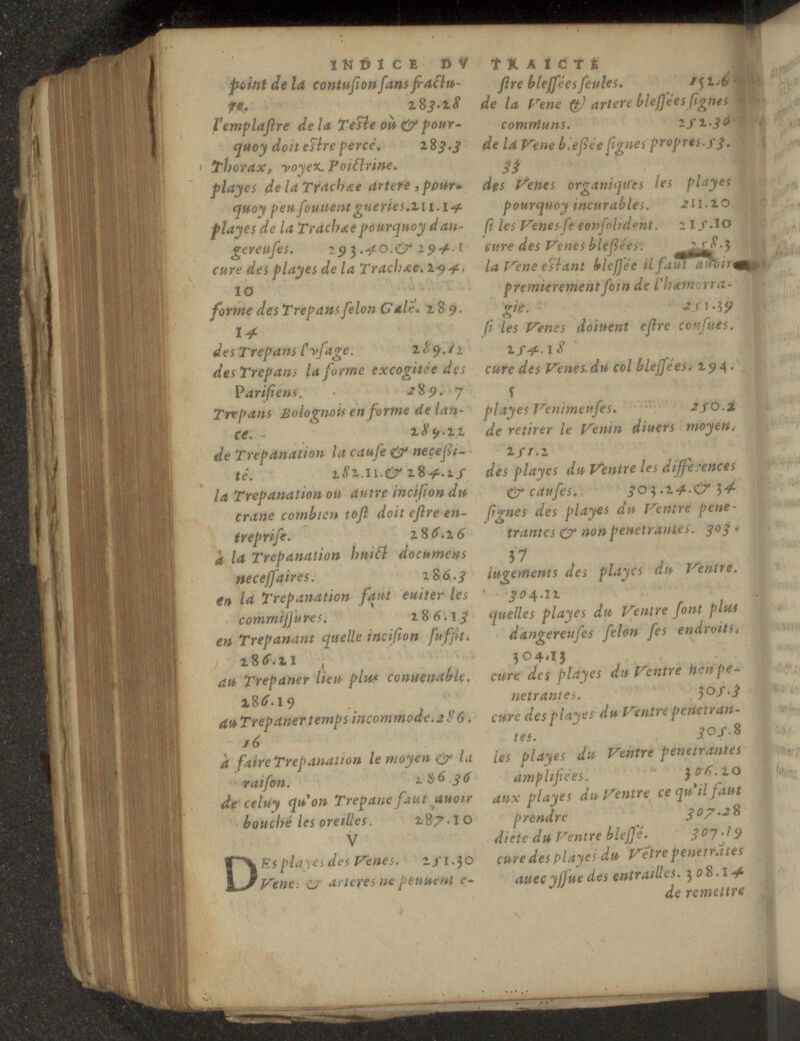 INDICE DV TRAICTE
point de la contusion sans fractu-
re. 283.28
l'emplastre de la Teste où & pour-
quoy doit estre percé. 283.3
Thorax, voyez Poictrine.
playes de la Trachæe artere, pour-
quoy peu souuent gueries. 211.14
playes de la Trachæe pourquoy dan-
gereuses. 293.40.& 294.1
cure des playes de la Trachæe. 294.
10
forme des Trepans selon Galē. 289.
14
des Trepans l'vsage. 289.12
des Trepans la forme excogitée des
Parisiens. 289.7
Trepans Bolognois en forme de lan-
ce. 289.22
de Trepanation la cause & necessi-
té. 282.11.& 284.25
la Trepanation ou autre incision du
crane combien tost doit estre en-
treprise. 286.26
à la Trepanation huict documens
necessaires. 286.3
en la Trepanation faut euiter les
commissures. 286.13
en Trepanant quelle incision suffit.
286.21
au Trepaner lieu plus conuenable.
286.19
au Trepaner temps incommode. 286.
16
à faire Trepanation le moyen & la
raison. 286.36
de celuy qu'on Trepane faut auoir
bouché les oreilles. 287.10
V
DEs playes des Venes. 251.30
Venes & arteres ne peuuent e-
stre blessées seules. 252.6
de la Vene & artere blessées signes
communs. 252.30
de la Vene blessée signes propres. 53.
33
des Venes organiques les playes
pourquoy incurables. 211.20
si les Venes se consolident. 215.10
cure des Venes blessées. 258.3
la Vene estant blessée il faut auoir
premierement soin de l'hæmorra-
gie. 251.39
si les Venes doiuent estre cousues.
254.18
cure des Venes du col blessées. 294.
5
playes Venimeuses. 250.2
de retirer le Venin diuers moyen.
251.2
des playes du Ventre les differences
& causes. 303.24.& 34
signes des playes du Ventre pene-
trantes & non penetrantes. 303.
37
iugements des playes du Ventre.
304.12
quelles playes du Ventre sont plus
dangereuses selon ses endroits.
304.13
cure des playes du Ventre non pe-
netrantes. 305.3
cure des playes du Ventre penetran-
tes. 305.8
les playes du Ventre penetrantes
amplifiées. 306.20
aux playes du Ventre ce qu'il faut
prendre 307.28
diete du Ventre blessé. 307.19
cure des playes du Vētre penetrātes
auec yssue des entrailles. 308.14
de remettre